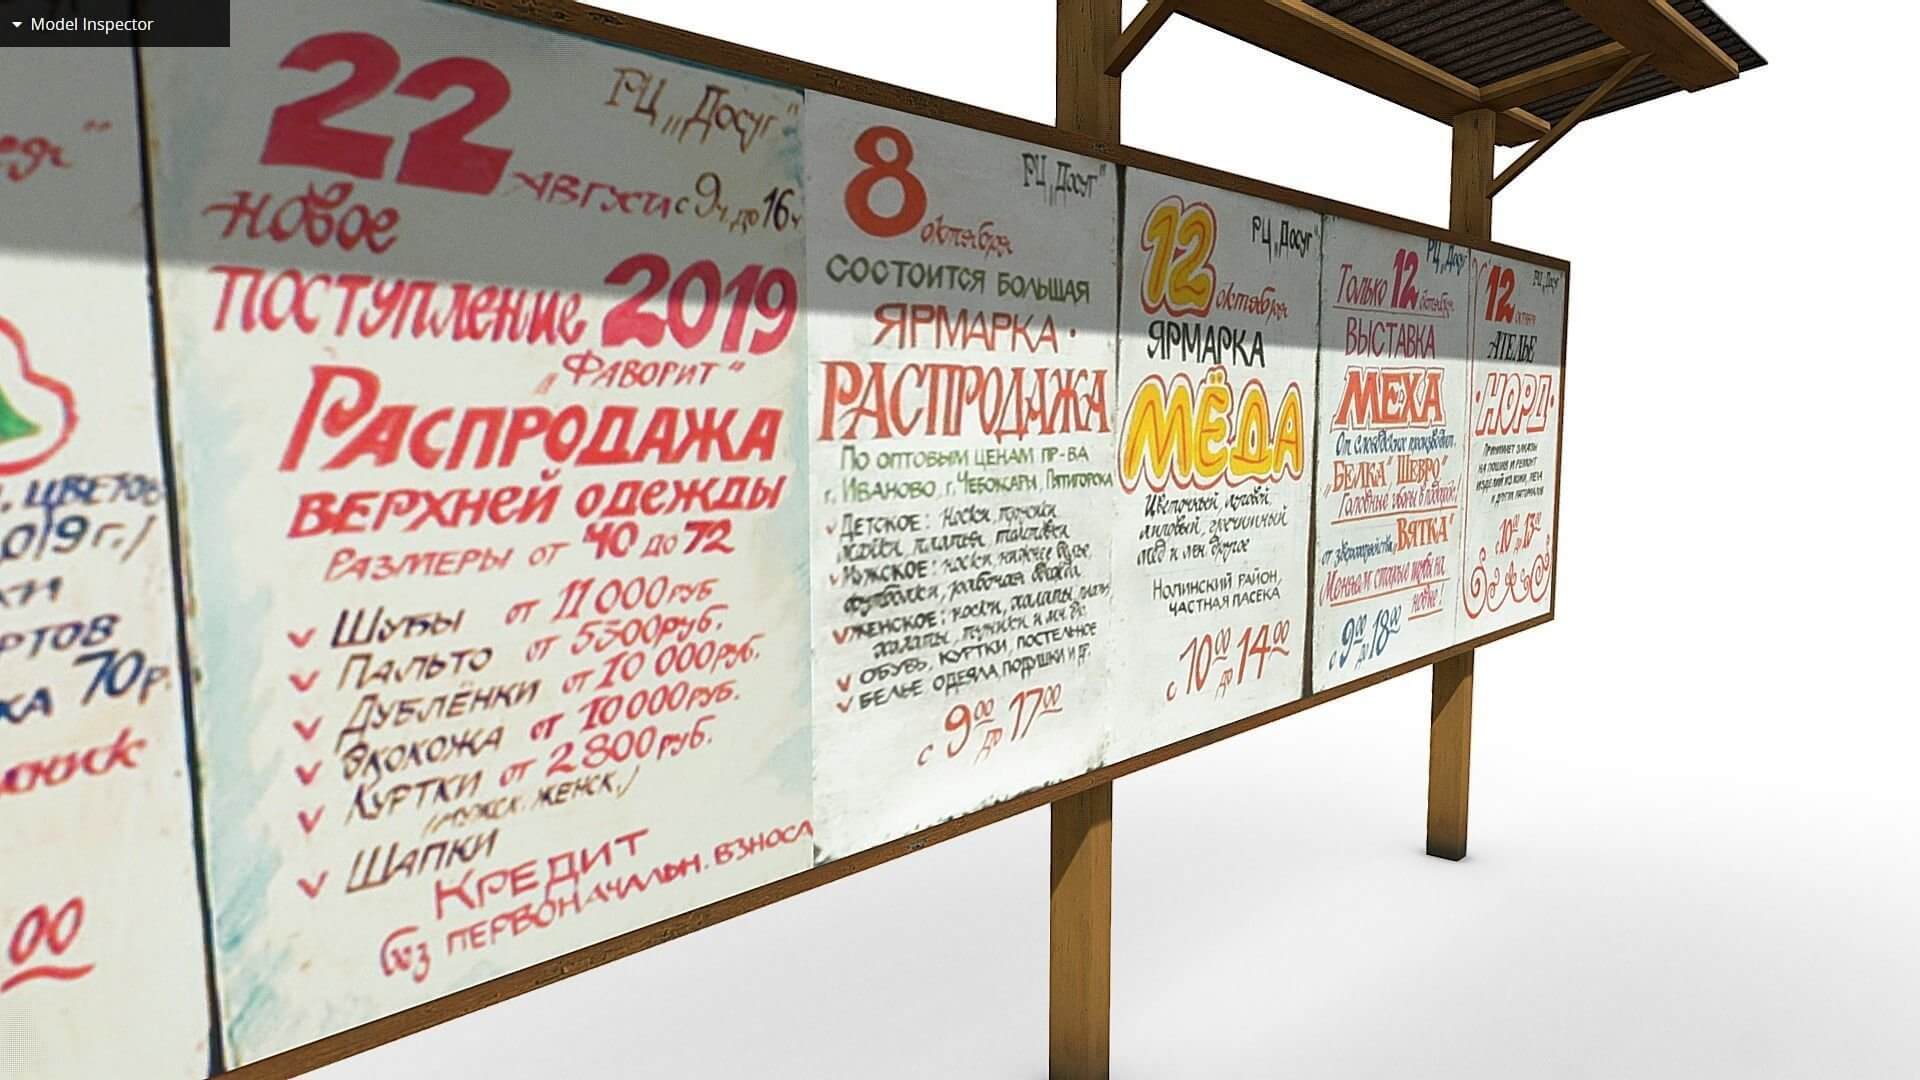 Model Inspector
, ЦВЕТОВ
019г./
РТОВ
КА 70р.
00
22
АВГУСТА с 9ч. до 16ч
РЦ „Досуг"
новое
поступление 2019
„Фаворит"
Распродажа
верхней одежды
Размеры от 40 до 72
Шубы от 11 000 руб
Пальто от 5500 руб.
Дублёнки от 10 000 руб.
Экокожа от 10 000 руб.
Куртки от 2 800 руб.
/мужск. женск./
Шапки
Кредит
без первоначальн. взноса
8
октября
РЦ „Досуг"
состоится большая
ЯРМАРКА ·
РАСПРОДАЖА
По оптовым ценам пр-ва
г. Иваново, г. Чебоксары, Пятигорска
Детское: носки,
Мужское: носки, нижнее бельё,
футболки, рабочая одежда
Женское: носки, халаты,
обувь, куртки, постельное
белье одеяла, подушки и др.
с 9 00 до 17 00
12
октября
РЦ „Досуг"
ЯРМАРКА
МЁДА
Цветочный, луговой,
липовый, гречишный
мёд и мн. другое
Нолинский район,
частная пасека
с 10 00 до 14 00
РЦ „Досуг"
Только 12 октября
ВЫСТАВКА
МЕХА
От слободских производит.
„БЕЛКА" „ШЕВРО"
Головные уборы в подарок!
от зверохозяйства „ВЯТКА"
Меняем старые шубы на
новые!
с 9 00 до 18 00
12
октября
РЦ „Досуг"
АТЕЛЬЕ
·НОРД·
Принимает заказы
на пошив и ремонт
изделий из кожи, меха
и других материалов
с 10 00 до 13 00